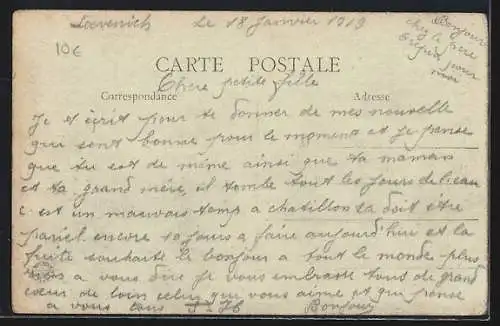 Loevenich Le 18 Janvier 1919
10€
Bonjour
chez le père
pour
moi
CARTE POSTALE
Chere petite fille
Correspondance Adresse
Je t ecrit pour te donner de mes nouvelle
qui sont bonne pour le moment et je pense
que tu est de même ainsi que ta maman
et ta grand mère, il tombe tout les jours de l'eau
c est un mauvais temp a chatillon ca doit etre
pariel encore 10 jours a faire aujourd'hui et la
fuite souhaite le bonjour a tout le monde plus
rien a vous dire je vous embrasse tous de grand
cœur de loin celui qui vous aime et qui pense
a vous tous Bonjour